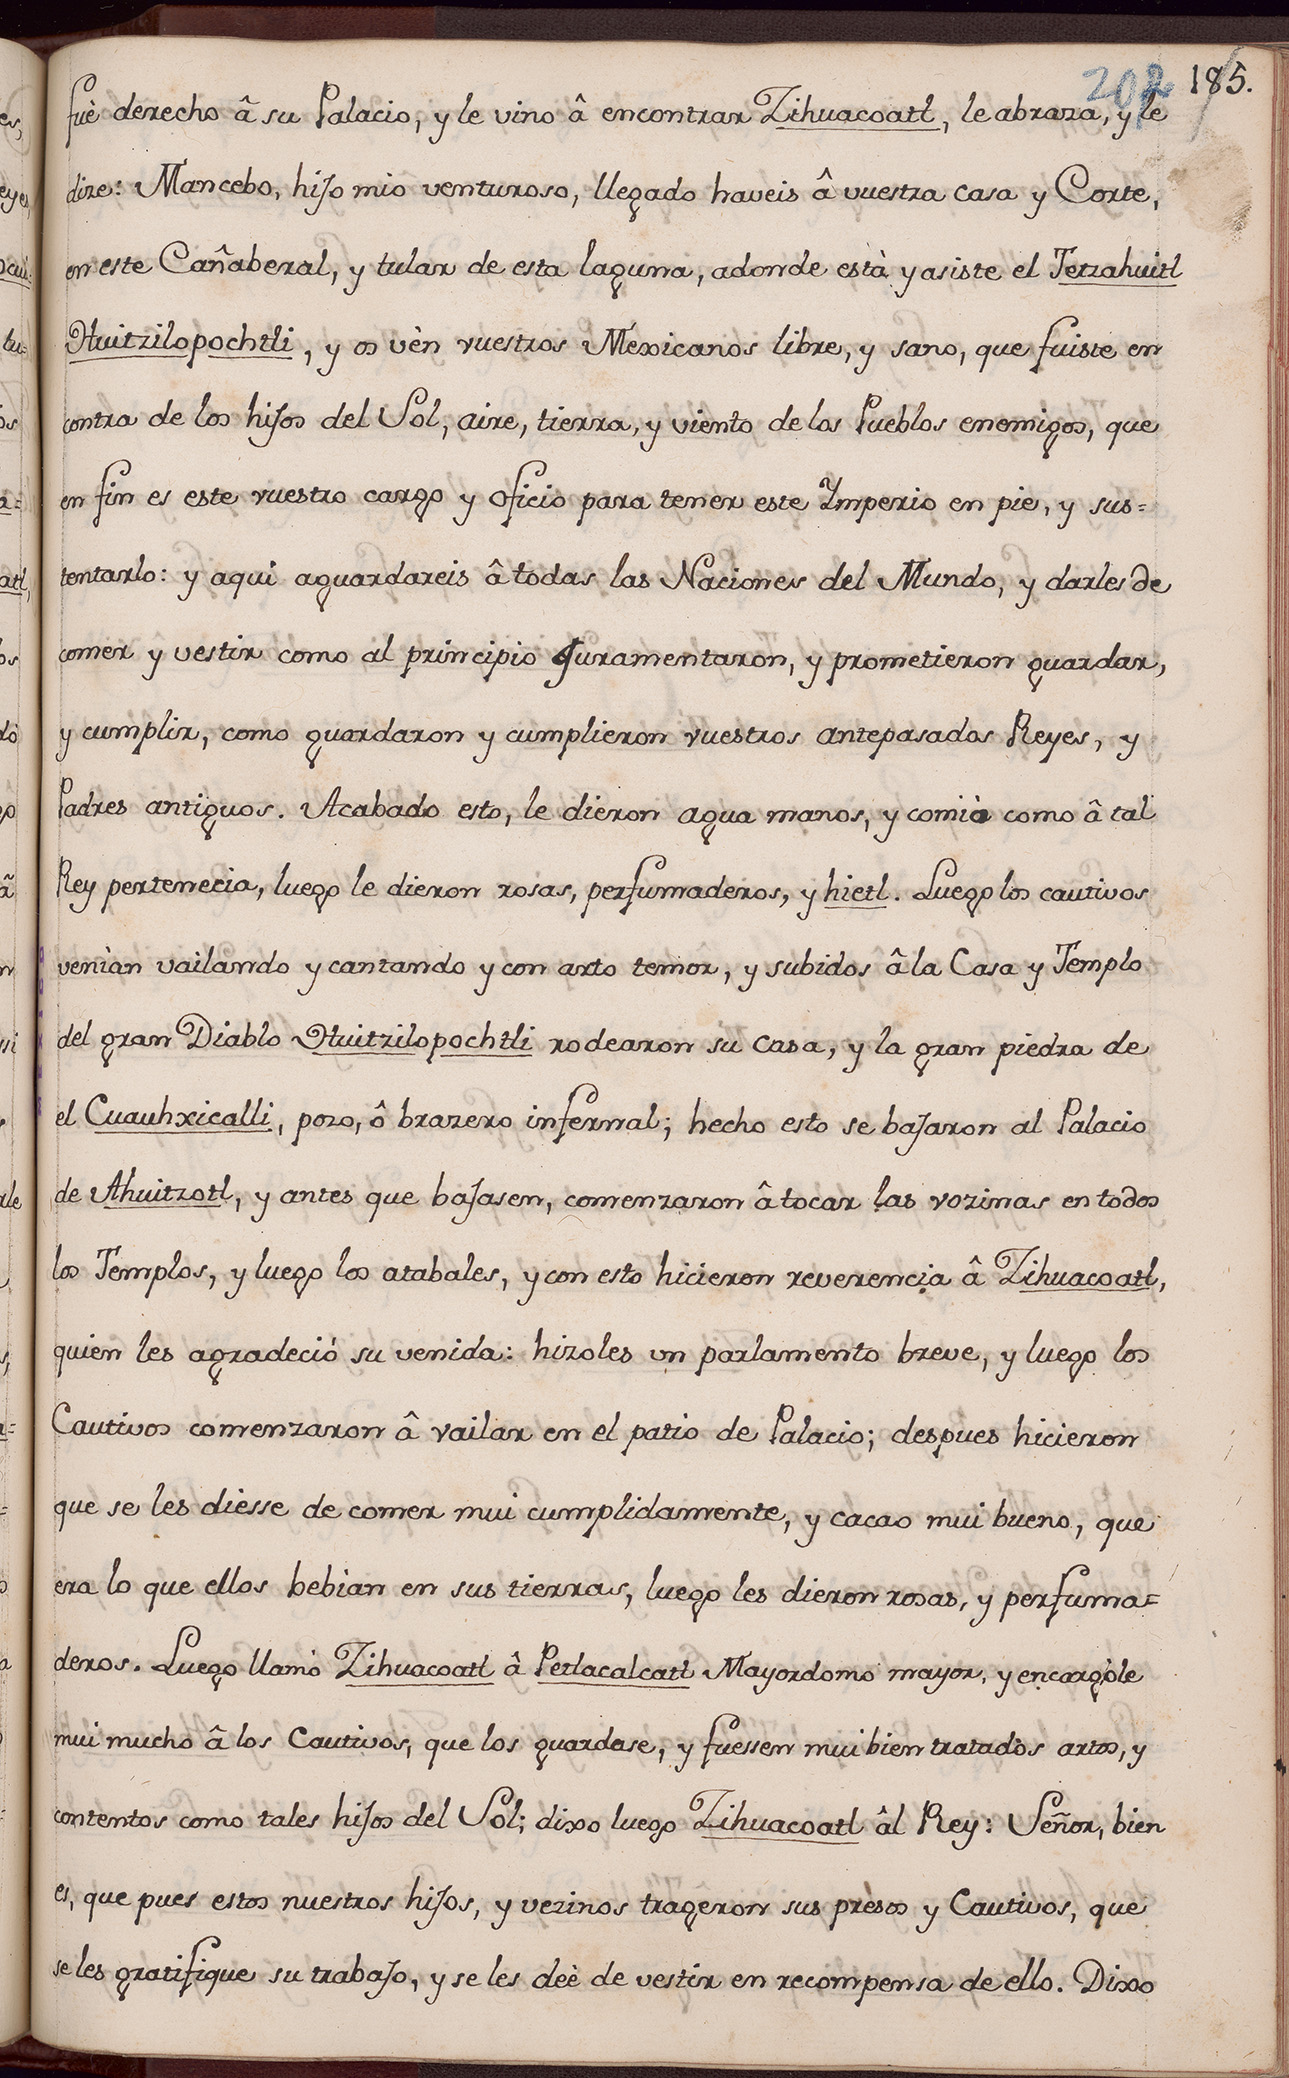 202 185.
fuè derecho â su Palacio, y le vino â encontrar Zihuacoatl, le abraza, y le
dize: Mancebo, hijo mio venturoso, llegado haveis â vuestra casa y Corte,
en este Cañaberal, y tular de esta laguna, adonde està y asiste el Tetzahuitl
Huitzilopochtli, y os vèn vuestros Mexicanos libre, y sano, que fuiste en
contra de los hijos del Sol, aire, tierra, y viento de los Pueblos enemigos, que
en fin es este vuestro cargo y oficio para tener este Imperio en pie, y sus=
tentarlo: y aqui aguardareis â todas las Naciones del Mundo, y darles de
comer y vestir como al principio Juramentaron, y prometieron guardar,
y cumplir, como guardaron y cumplieron vuestros antepasados Reyes, y
Padres antiguos. Acabado esto, le dieron agua manos, y comiò como â tal
Rey pertenecia, luego le dieron rosas, perfumaderos, y hietl. Luego los cautivos
venìan vailando y cantando y con arto temor, y subidos â la Casa y Templo
del gran Diablo Huitzilopochtli rodearon su casa, y la gran piedra de
el Cuauhxicalli, pozo, ô brazero infernal; hecho esto se bajaron al Palacio
de Ahuitzotl, y antes que bajasen, comenzaron â tocar las vozinas en todos
los Templos, y luego los atabales, y con esto hicieron reverencia â Zihuacoatl,
quien les agradeció su venida: hizoles un parlamento breve, y luego los
Cautivos comenzaron â vailar en el patio de Palacio; despues hicieron
que se les diesse de comer mui cumplidamente, y cacao mui bueno, que
era lo que ellos bebìan en sus tierras, luego les dieron rosas, y perfuma=
deros. Luego llamò Zihuacoatl â Petlacalcatl Mayordomo mayor, y encargòle
mui mucho â los Cautivos, que los guardase, y fuessen mui bien tratados artos, y
contentos como tales hijos del Sol; dixo luego Zihuacoatl âl Rey: Señor, bien
es, que pues estos nuestros hijos, y vezinos trageron sus presos y Cautivos, que
se les gratifique su trabajo, y se les deè de vestir en recompensa de ello. Dixo